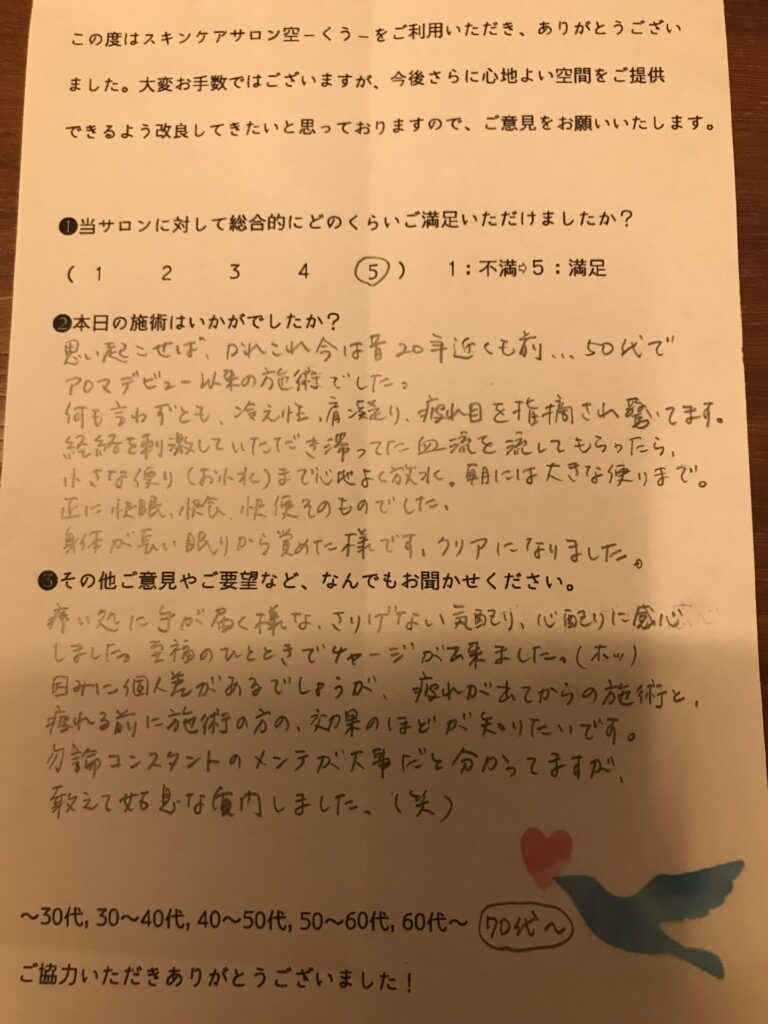 この度はスキンケアサロン空－くう－をご利用いただき、ありがとうござい
ました。大変お手数ではございますが、今後さらに心地よい空間をご提供
できるよう改良してきたいと思っておりますので、ご意見をお願いいたします。
❶当サロンに対して総合的にどのくらいご満足いただけましたか？
( 1 2 3 4 5 ) 1：不満⇨5：満足
❷本日の施術はいかがでしたか？
思い起こせば、かれこれ今は昔20年近くも前…50代で
アロマデビュー以来の施術でした。
何も言わずとも、冷え性、肩凝り、疲れ目を指摘され驚いてます。
経絡を刺激していただき滞ってた血流を流してもらったら、
小さな便り(お小水)まで心地よく放水。朝には大きな便りまで。
正に快眠、快食、快便そのものでした。
身体が長い眠りから覚めた様です、クリアになりました。
❸その他ご意見やご要望など、なんでもお聞かせください。
痒い処に手が届く様な、さりげない気配り、心配りに感心
しました。至福のひとときでチャージが出来ました。(ホッ)
因みに個人差があるでしょうが、疲れが出てからの施術と、
疲れる前に施術の方の、効果のほどが知りたいです。
勿論コンスタントのメンテが大事だと分かってますが、
敢えて な質問しました。(笑)
～30代, 30～40代, 40～50代, 50～60代, 60代～ 70代～
ご協力いただきありがとうございました！